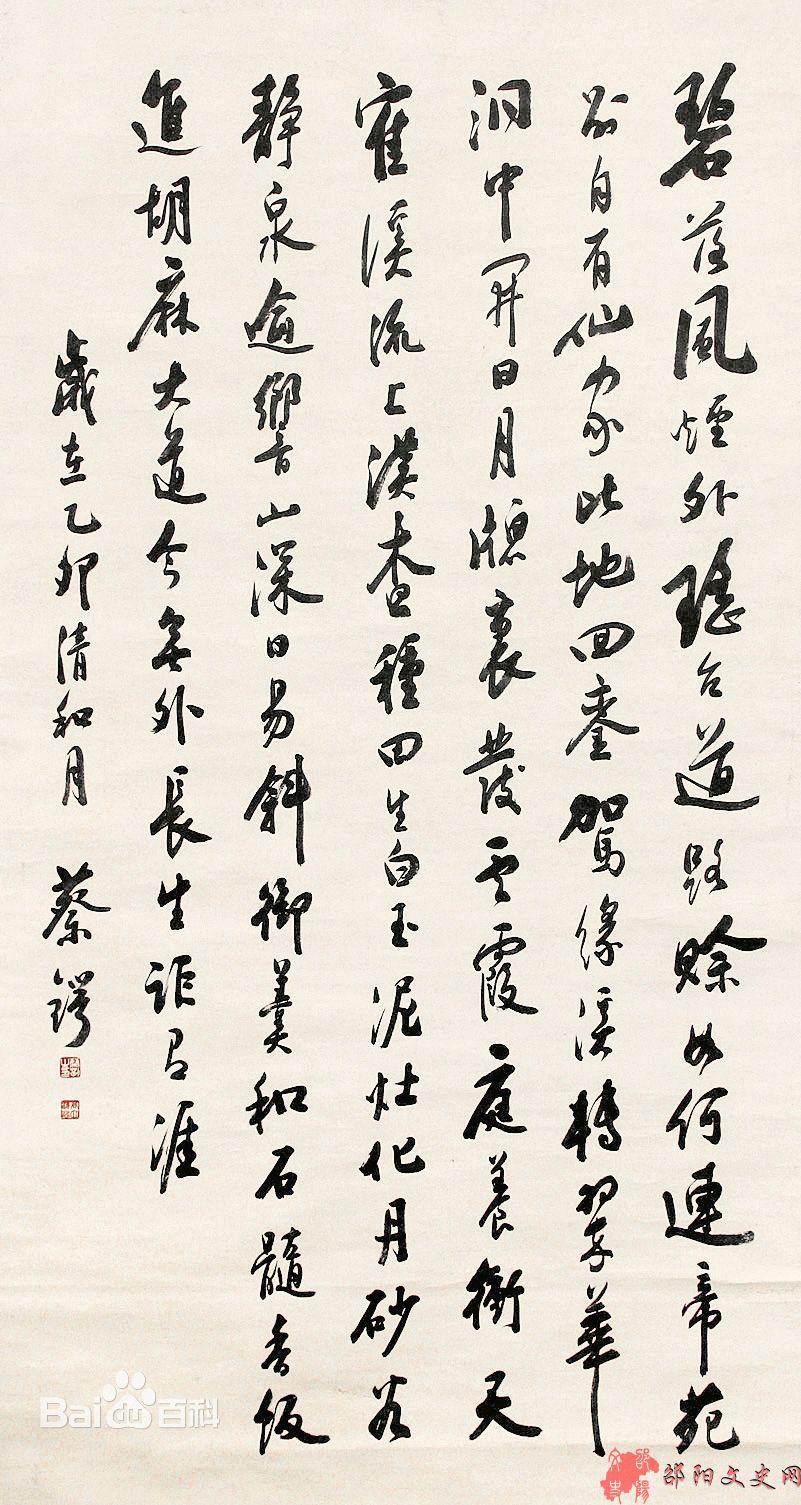 碧落風煙外瑤台道路賒如何連帝苑
別自有仙家此地回鑾駕緣溪轉翠華
洞中開日月牕裏發雲霞庭養衝天
寉溪流上漢查種田生白玉泥灶化丹砂谷
靜泉逾響山深日易斜御羹和石髓香飯
進胡麻大道今無外長生詎有涯
歲在乙卯清和月 蔡鍔
Bai 百科
邵阳文史网